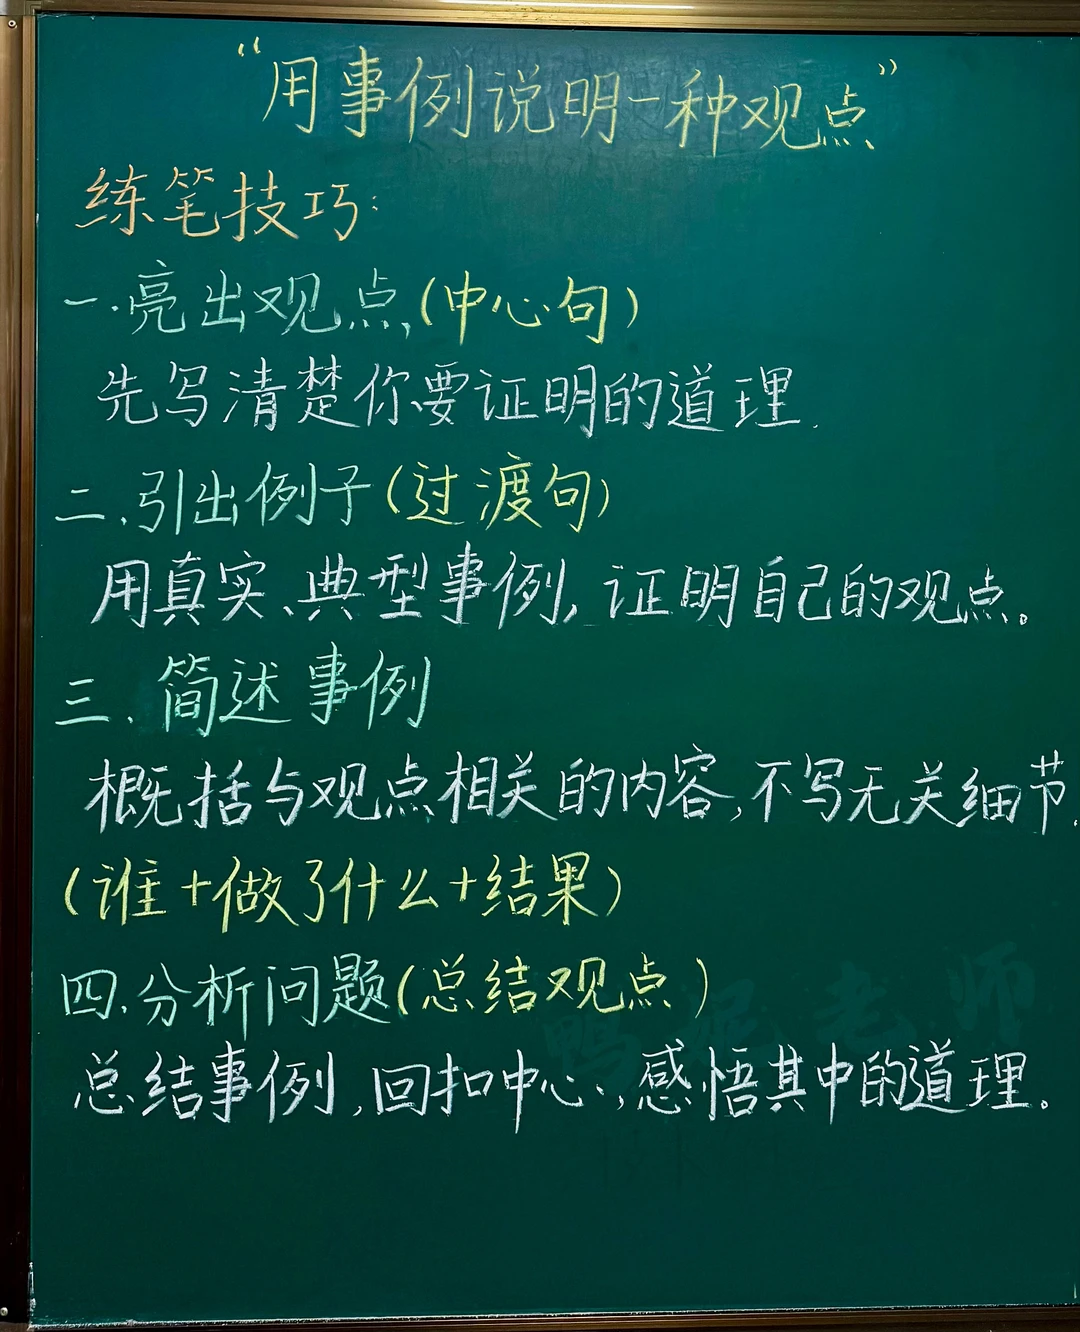 “用事例说明一种观点”
练笔技巧:
一.亮出观点,(中心句)
先写清楚你要证明的道理.
二.引出例子(过渡句)
用真实、典型事例,证明自己的观点。
三.简述事例
概括与观点相关的内容,不写无关细节.
(谁+做了什么+结果)
四.分析问题(总结观点)
总结事例,回扣中心,感悟其中的道理。